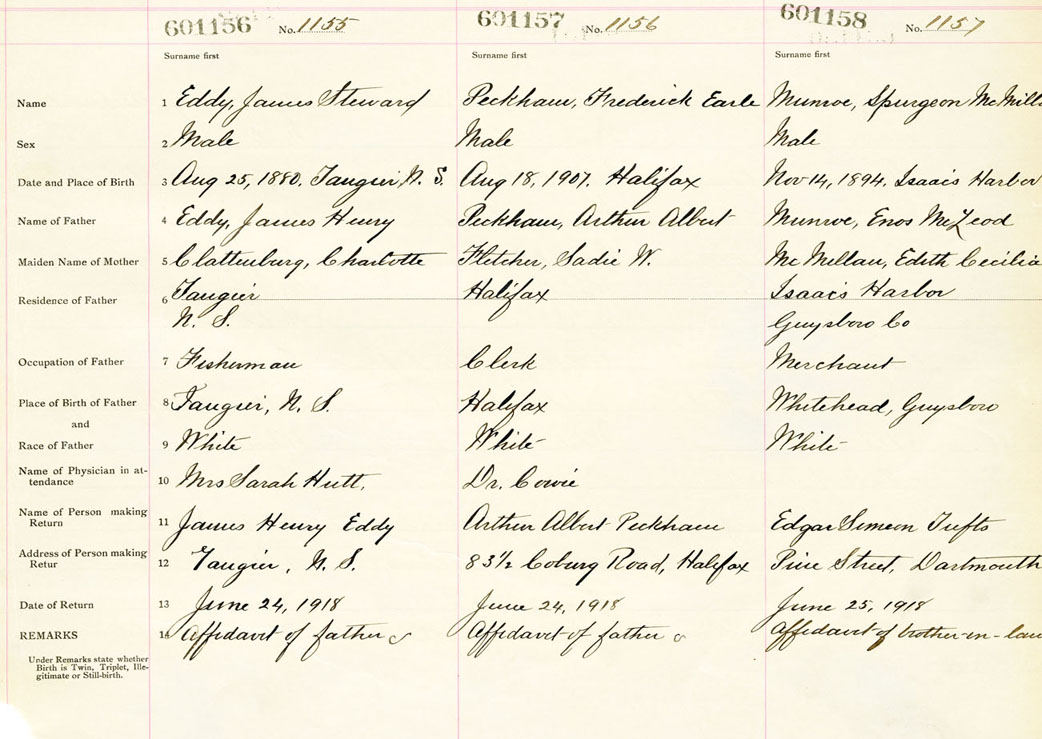 601156 No. 1155 601157 No. 1156 601158 No. 1157
Surname first Surname first Surname first
Name 1 Eddy, James Steward Peckham, Frederick Earle Munroe, Spurgeon McMill
Sex 2 Male Male Male
Date and Place of Birth 3 Aug 25, 1880. Tangier, N. S. Aug 18, 1907. Halifax Nov 14, 1894. Isaacs Harbor
Name of Father 4 Eddy, James Henry Peckham, Arthur Albert Munroe, Enos McLeod
Maiden Name of Mother 5 Clattenburg, Charlotte Fletcher, Sadie W. McMillan, Edith Cecilia
Residence of Father 6 Tangier Halifax Isaacs Harbor
N. S. Guysboro Co
Occupation of Father 7 Fisherman Clerk Merchant
Place of Birth of Father 8 Tangier, N. S. Halifax Whitehead, Guysboro
and
Race of Father 9 White White White
Name of Physician in at-
tendance 10 Mrs Sarah Hutt. Dr. Cowie
Name of Person making
Return 11 James Henry Eddy Arthur Albert Peckham Edgar Simeon Tufts
Address of Person making
Retur 12 Tangier, N. S. 83½ Coburg Road, Halifax Pine Street, Dartmouth
Date of Return 13 June 24, 1918 June 24, 1918 June 25, 1918
REMARKS 14 Affidavit of father Affidavit of father Affidavit of brother-in-law
Under Remarks state whether
Birth is Twin, Triplet, Ille-
gitimate or Still-birth.